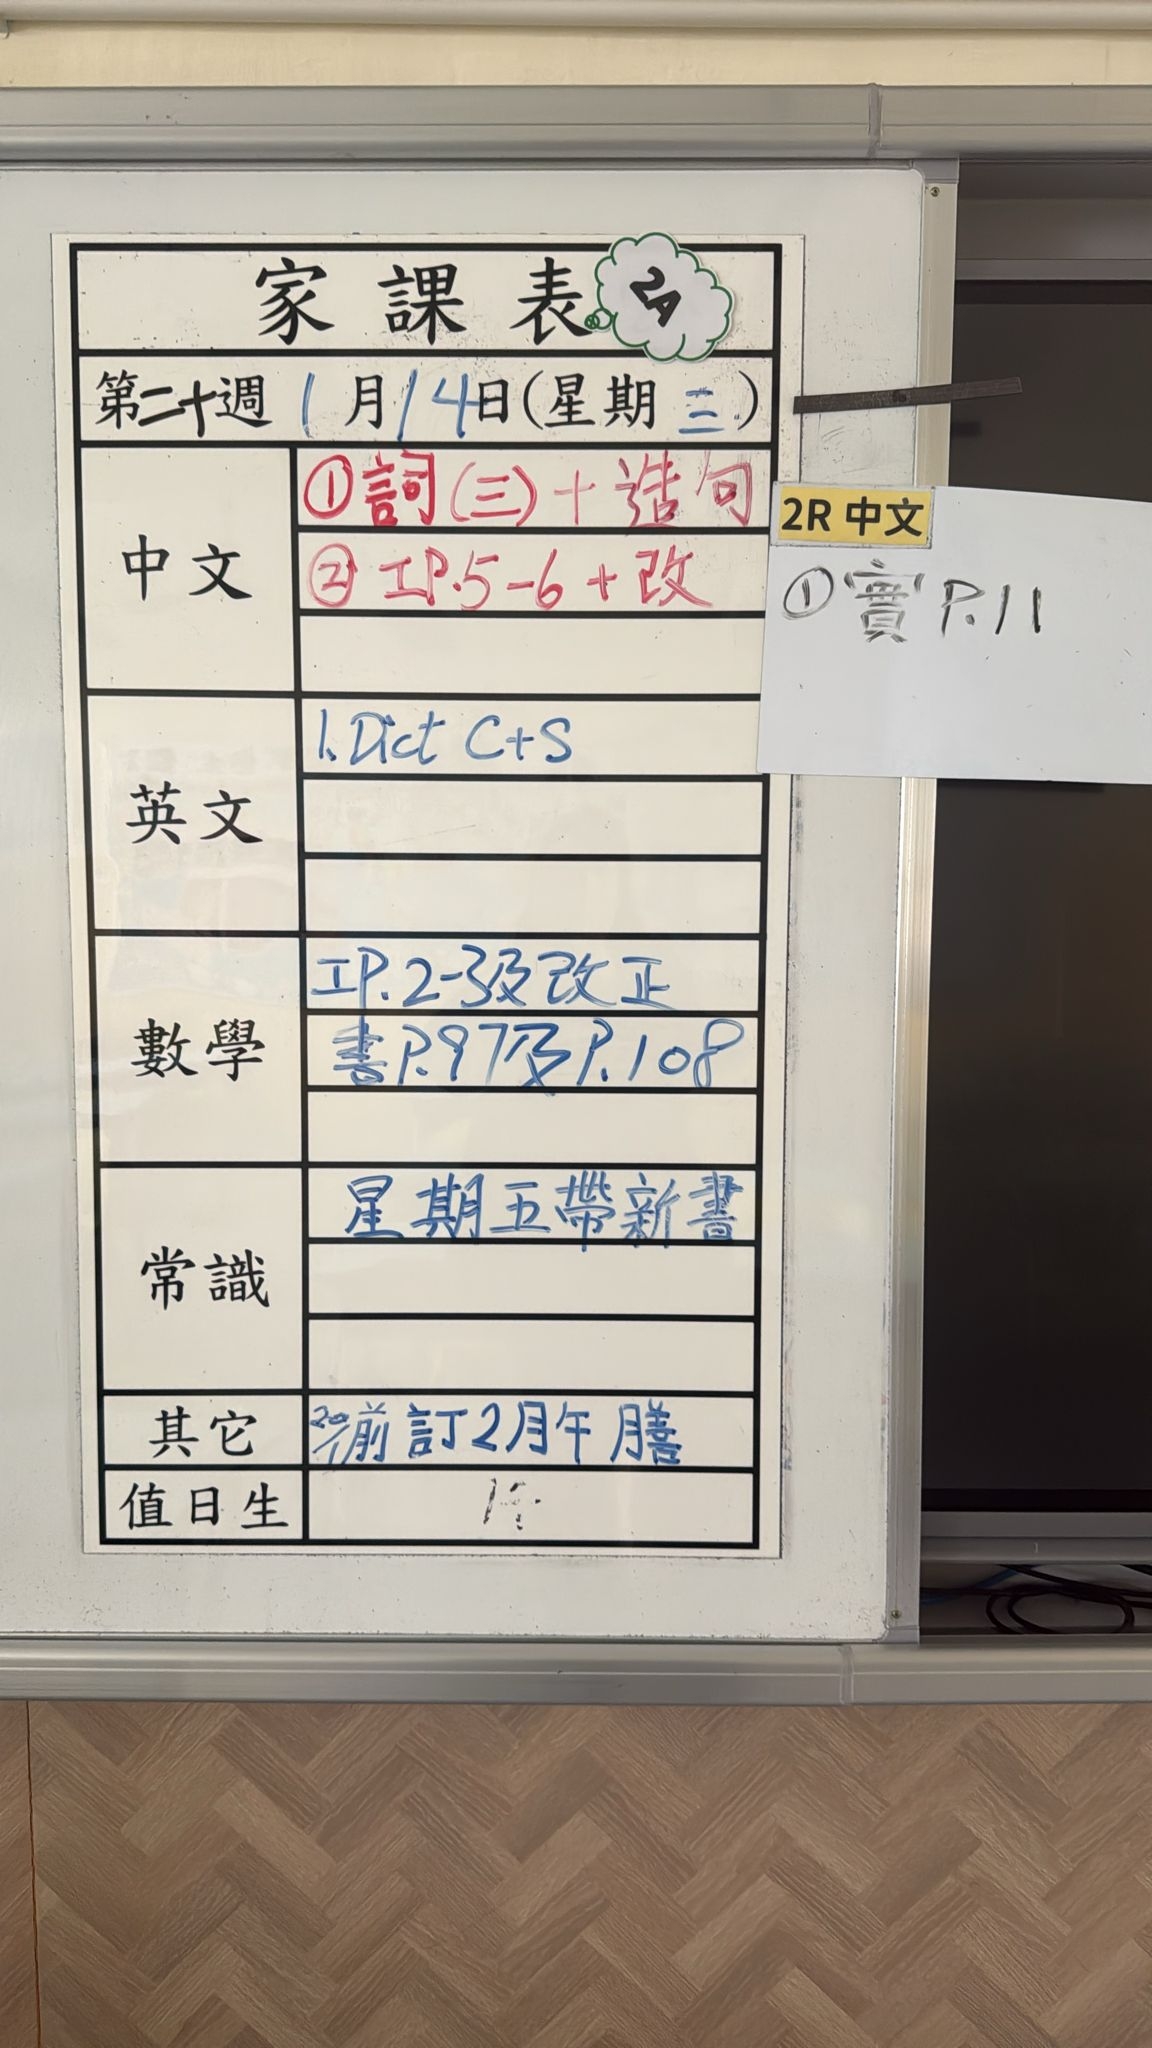 家課表
2A
第二十週 1月14日(星期三)
中文
①詞(三)+造句
②工P.5-6+改
2R 中文
①實P.11
英文
1.Dict C+S
數學
工P.2-3及改正
書P.97及P.108
常識
星期五帶新書
其它
20/1前訂2月午膳
值日生